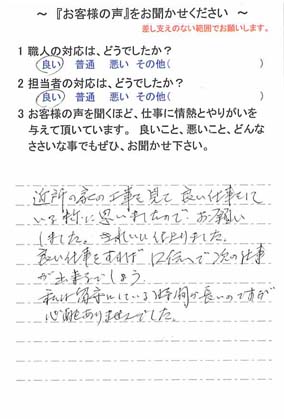 ～ 『お客様の声』をお聞かせください ～
差し支えのない範囲でお願いします。
1 職人の対応は、どうでしたか？
良い 普通 悪い その他( )
2 担当者の対応は、どうでしたか？
良い 普通 悪い その他( )
3 お客様の声を聞くほど、仕事に情熱とやりがいを
与えて頂いています。 良いこと、悪いこと、どんな
ささいな事でもぜひ、お聞かせ下さい。
近所の家の工事を見て 良い仕事をして
いる様に思いましたので お願い
しました。きれいに仕上りました。
良い仕事をすれば 口伝へで次の仕事
が出来るでしょう
私は留守にしている時間が長いのですが
心配ありませんでした。